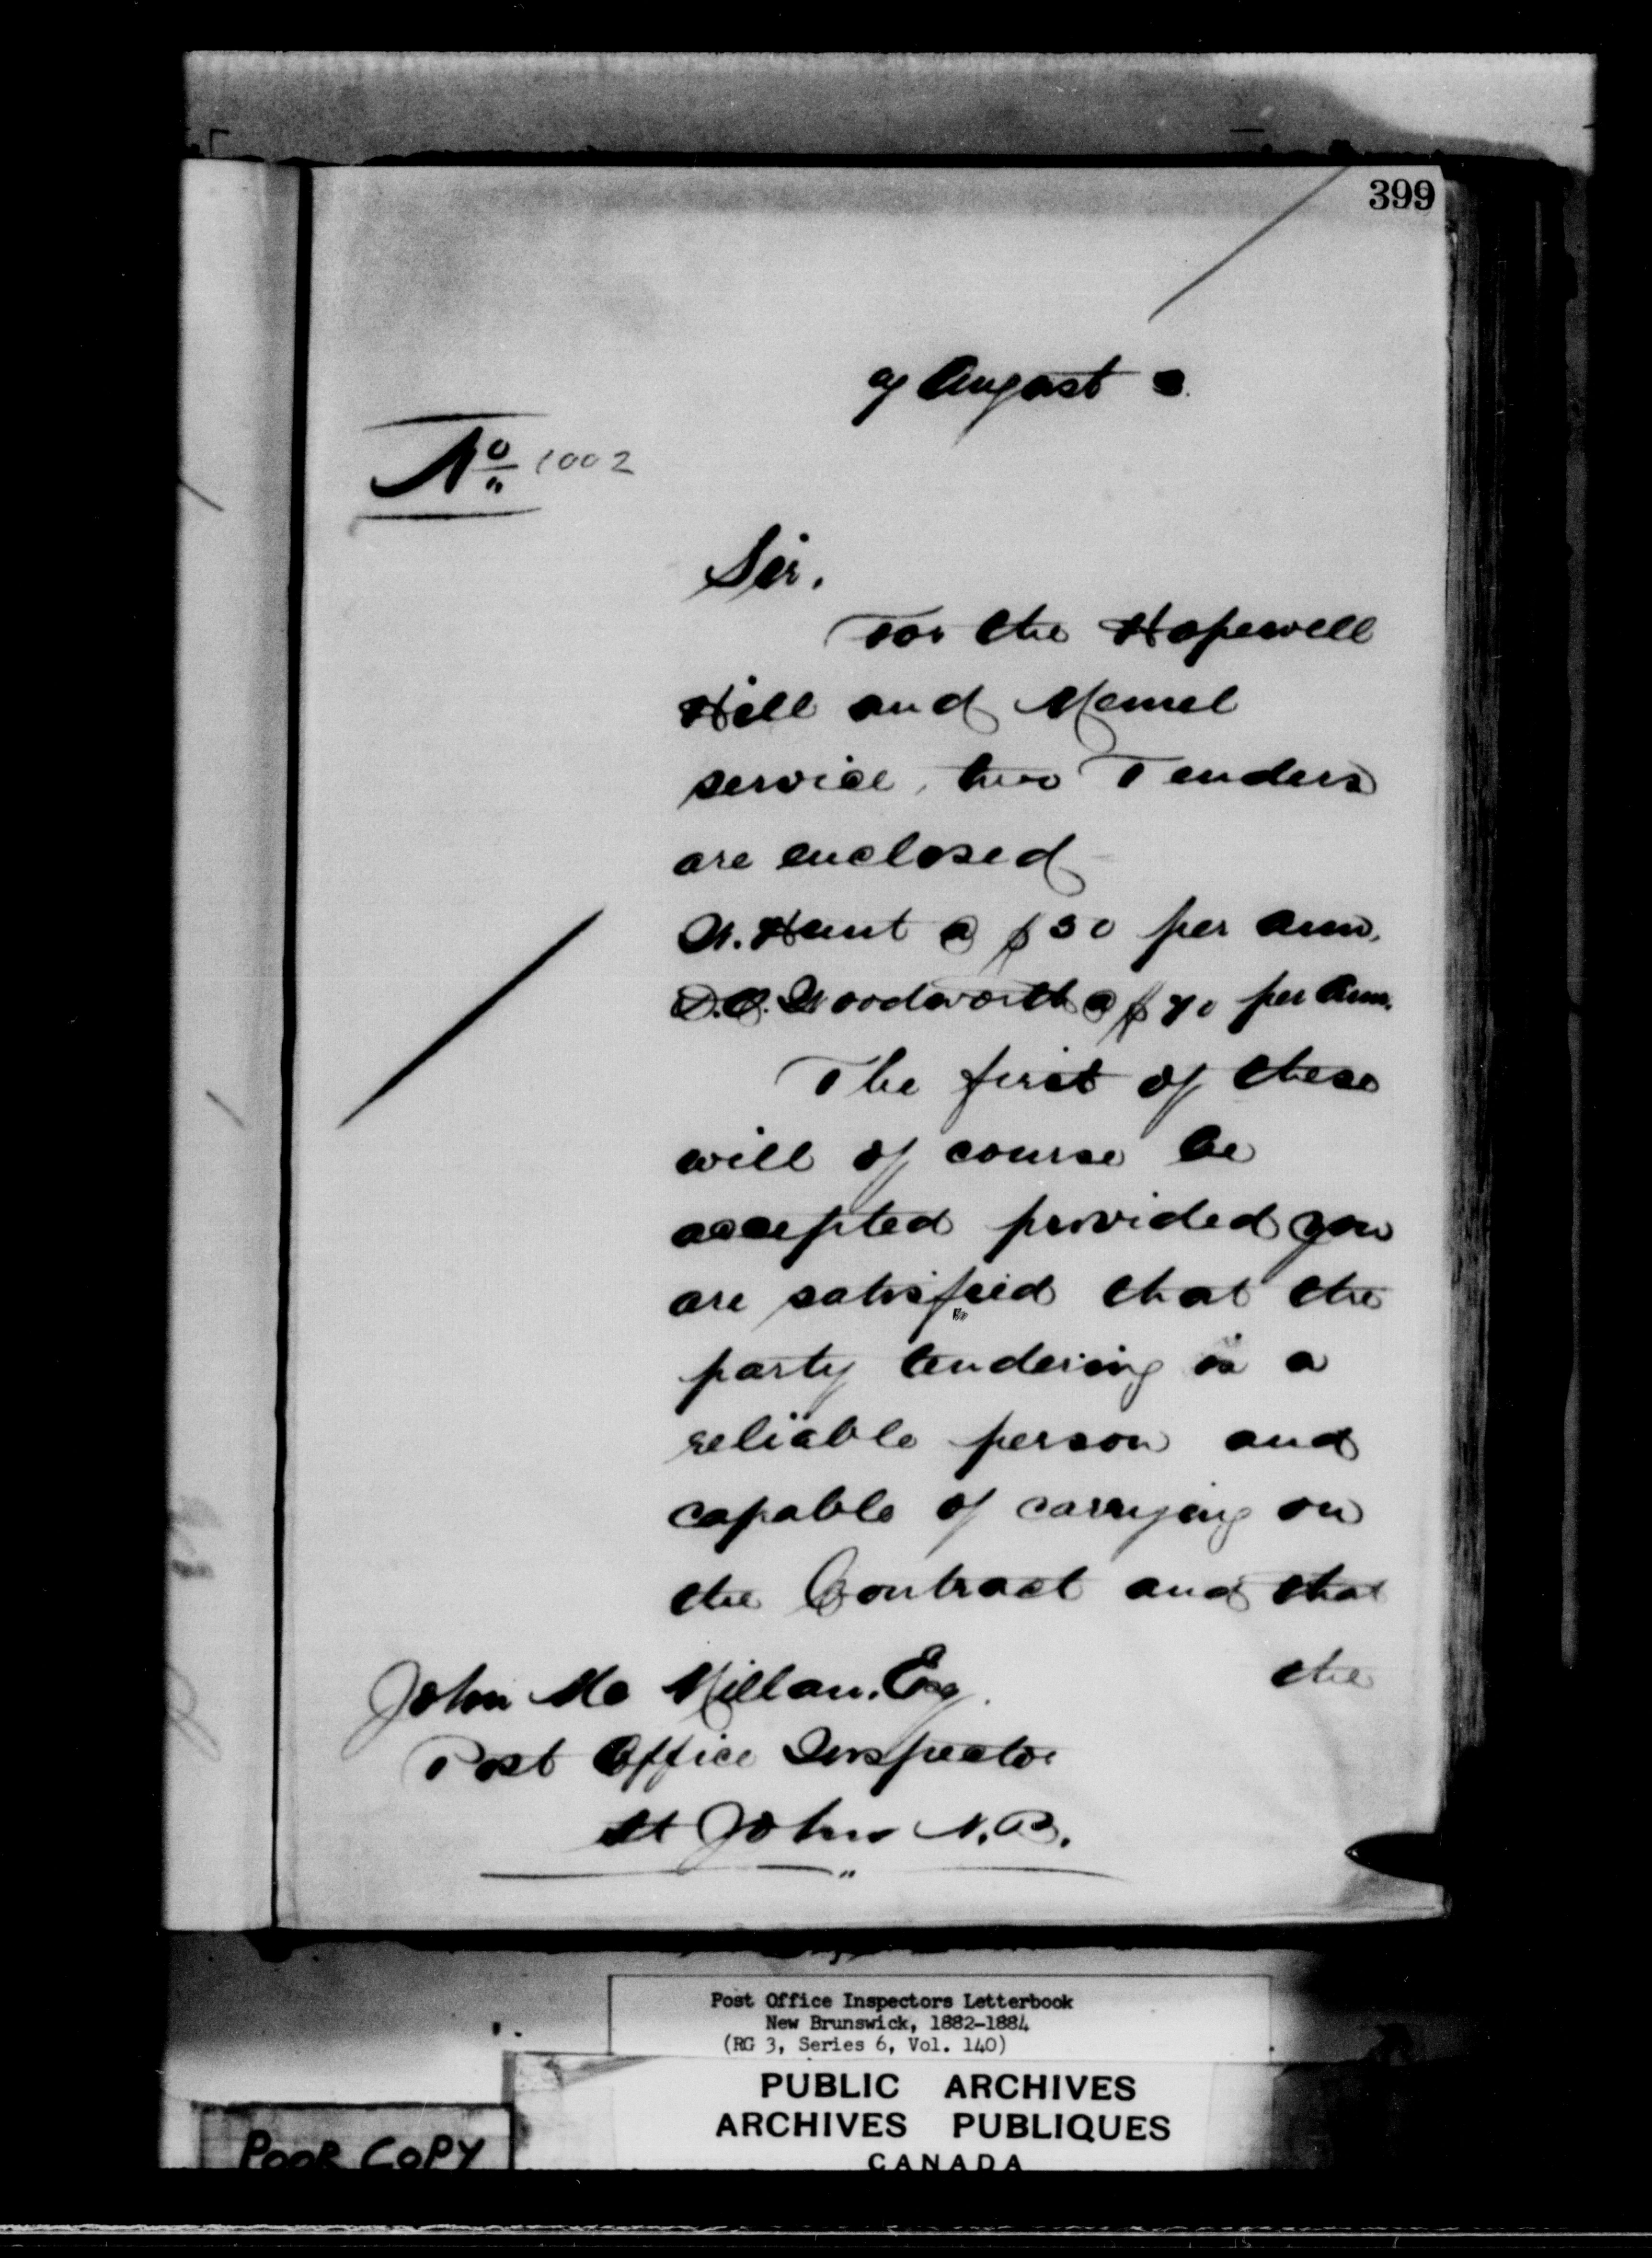 399
9 August 3.
No 1002
Sir,
For the Hopewell
Hill and Memel
service, two Tenders
are enclosed
W. Hunt @ $50 per ann.
Woodworth @ $70 per Ann.
The first of these
will of course be
accepted provided you
are satisfied that the
party tendering is a
reliable person and
capable of carrying on
the Contract and that
the
John Mc Millan, Esq.
Post Office Inspector
St John N.B.
Post Office Inspectors Letterbook
New Brunswick, 1882-1884
(RG 3, Series 6, Vol. 140)
PUBLIC ARCHIVES
ARCHIVES PUBLIQUES
CANADA
POOR COPY